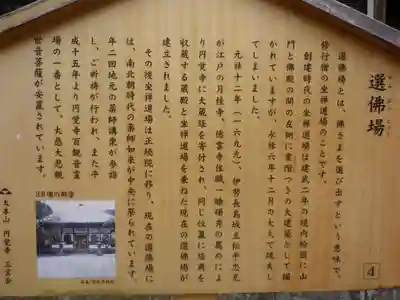 選佛場
選佛場とは、佛さまを選び出すという意味で、
修行僧の坐禅道場のことです。
創建時代の坐禅道場は建武二年の境内絵図に山
門と佛殿の間の左側に重階つきの大建築として描
かれていますが、永禄六年十二月の大火で焼失し
てしまいました。
元禄十二年（一六九九）、伊勢長島城主松平忠充
が江戸の月桂寺、徳雲寺住職一睡碩秀の薦めによ
り円覚寺に大蔵経を寄付され、同じ位置に経典を
収蔵する蔵殿と坐禅道場を兼ねた現在の選佛場が
建立されました。
その後坐禅道場は正続院に移り、現在の選佛場に
は、南北朝時代の薬師如来が中央に祭られています。
年二回地元の薬師講衆が参詣
し、ご祈祷が行われ、また平
成十五年より円覚寺百観音霊
場の一番として、大慈大悲観
世音菩薩が安置されています。
大本山 円覚寺 三宝会
4